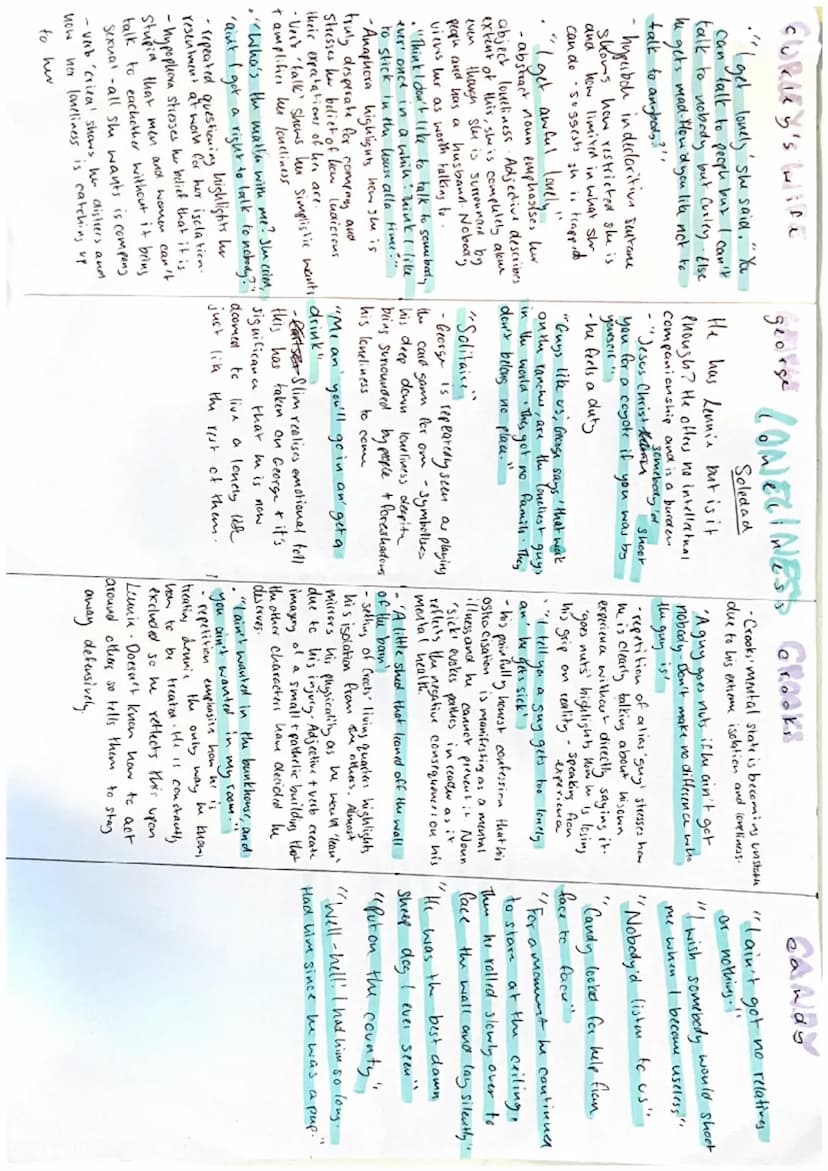 LONELINESS
curley's wife
• "'I get lonely' she said. "You
can talk to people but I can't
talk to nobody but Curley. Else
he gets mad. How'd you like not to
talk to anybody?'"
- hyperbole in declarative sentence
shows how restricted she is
and how limited in what she
can do. Suggests she is trapped
• "I get awful lonely"
- abstract noun emphasises her
abject loneliness. Adjective describes
extent of this, she is completely alone
even though she is surrounded by
people and has a husband. Nobody
views her as worth talking to.
• "Think I don't like to talk to somebody
ever once in a while? Think I like
to stick in the house alla time?"
- Anaphora highlights how she is
truly desperate for company and
stresses her belief of how ludicrous
their expectations of her are.
- Verb 'talk' shows her simplistic wants
+ amplifies her loneliness
• "'Who's the matter with me?' She cries,
'ain't I got a right to talk to nobody?'"
- repeated questioning highlights her
resentment at world for her isolation.
- hypophora stresses her belief that it is
stupid that men and women can't
talk to eachother without it being
sexual - all she wants is company
- verb 'cries' shows her distress and
how her loneliness is catching up
to her
george
He has Lennie but is it
enough? He offers no intellectual
companionship and is a burden
Soledad
- "Jesus Christ somebody'd shoot
you for a coyote if you was by
yourself"
- he feels a duty
"Guys like us', George says 'that work
on the ranches, are the loneliest guys
in the world. They got no family. They
don't belong no place."
"Solitaire"
- George is repeatedly seen as playing
the card game for one - symbolises
his deep down loneliness despite
being surrounded by people + foreshadows
his loneliness to come
"Me an' you'll go in an' get a
drink"
- Slim realises emotional toll
this has taken on George + it's
significance that he is now
doomed to live a lonely life
just like the rest of them.
crooks
- Crooks' mental state is becoming unstable
due to his extreme isolation and loneliness.
'A guy goes nuts if he ain't got
nobody. Don't make no difference who
the guy is'
- repetition of alias 'guy' stresses how
he is clearly talking about his own
experience without directly saying it.
'goes nuts' highlights how he is losing
his grip on reality - speaking from
experience
• "I tell ya a guy gets too lonely
an' he gets sick'
- his painfully honest confession that his
ostracisation is manifesting as a mental
illness and he cannot prevent it. Noun
'sick' evokes pathos in reader as it
reflects the negative consequences on his
mental health.
- 'A little shed that leaned off the wall
of the barn'
- setting of Crooks' living quarters highlights
his isolation from the others. Almost
mirrors his physicality as he would 'lean'
due to his injury. Adjective + verb create
imagery of a small + pathetic building that
the other characters have decided he
deserves.
• "I ain't wanted in the bunkhouse, and
you ain't wanted in my room."
- repetition emphasises how he is
treating Lennie the only way he knows
how to be treated. He is constantly
excluded so he reflects this upon
Lennie. Doesn't know how to act
around others so tells them to stay
away defensively.
candy
"I ain't got no relatives
or nothing."
"I wish somebody would shoot
me when I become useless"
"Nobody'd listen to us"
"Candy looked for help from
face to face"
"For a moment he continued
to stare at the ceiling,
then he rolled slowly over to
face the wall and lay silently"
"He was the best damn
sheep dog I ever seen"
"Put on the county"
"Well - hell! I had him so long.
Had him since he was a pup."